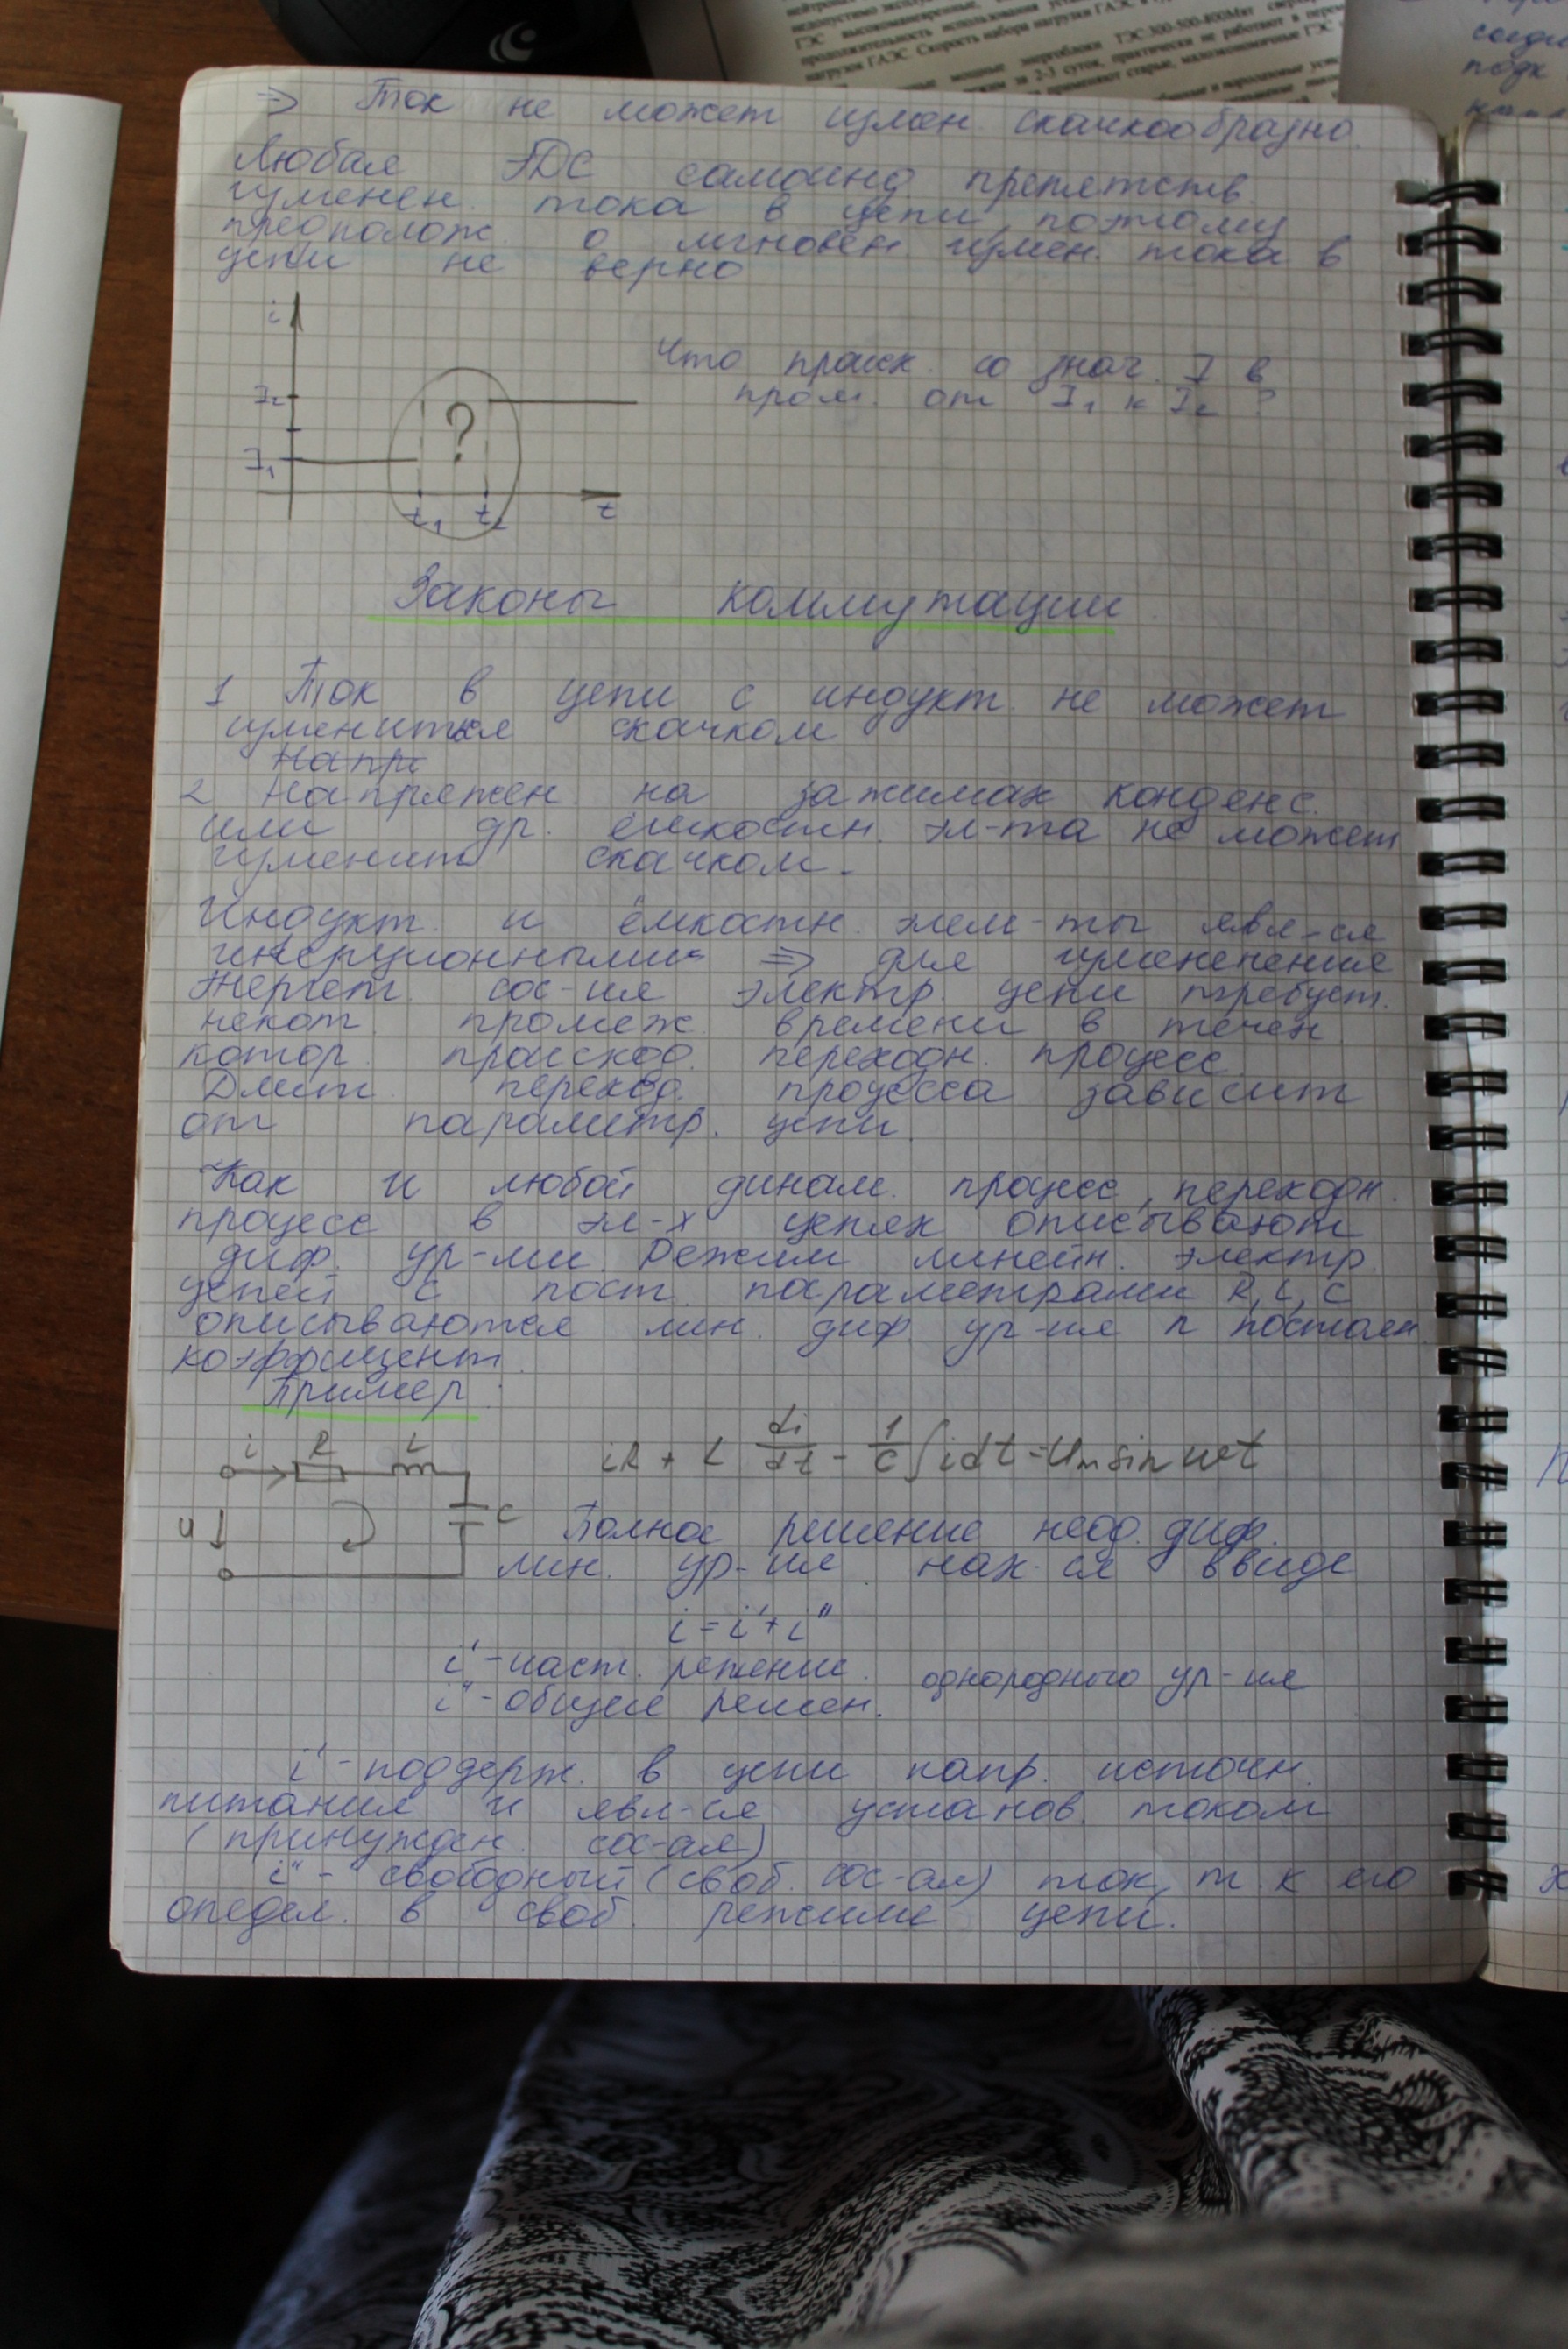 ⇒ Ток не может измен. скачкообразно.
Любая ЭДС самоинд препятств.
изменен. тока в цепи, поэтому
предполож. о мгновен. измен. тока в
цепи не верно
i
I₂
I₁
?
t₁ t₂ t
Что происх. со знач. I в
пром. от I₁ к I₂ ?
Законы коммутации
1 Ток в цепи с индукт. не может
измениться скачком
Напря
2 Напряжен. на зажимах конденс.
или др. ёмкостн. эл-та не может
изменит скачком.
Индукт. и ёмкостн. элем-ты явл-ся
инерционными ⇒ для изменения
энергет. сос-ия электр. цепи требует.
некот. промеж. времени в течен.
котор. происход. переходн. процесс.
Длит. переход. процесса зависит
от параметр. цепи.
Как и любой динам. процесс, переходн.
процесс в эл-х цепях описывают
диф. ур-ми. Режим линейн. электр.
цепей с пост. параметрами R, L, C
описываются лин. диф ур-ия постоян.
коэффициент.
Пример:
i R L
C
u
iR + L di/dt - 1/C ∫idt = Um sin ωt
Полное решение неод. диф.
лин. ур-ия нах-ся ввиде
i = i' + i''
i' - част. решение.
i'' - общее решен. однородного ур-ия
i' - поддерж. в цепи напр. источн.
питания и явл-ся установ. током
(принужден. сос-ая)
i'' - свободный (своб. сос-ая) ток, т. к его
опедел. в своб. режиме цепи.